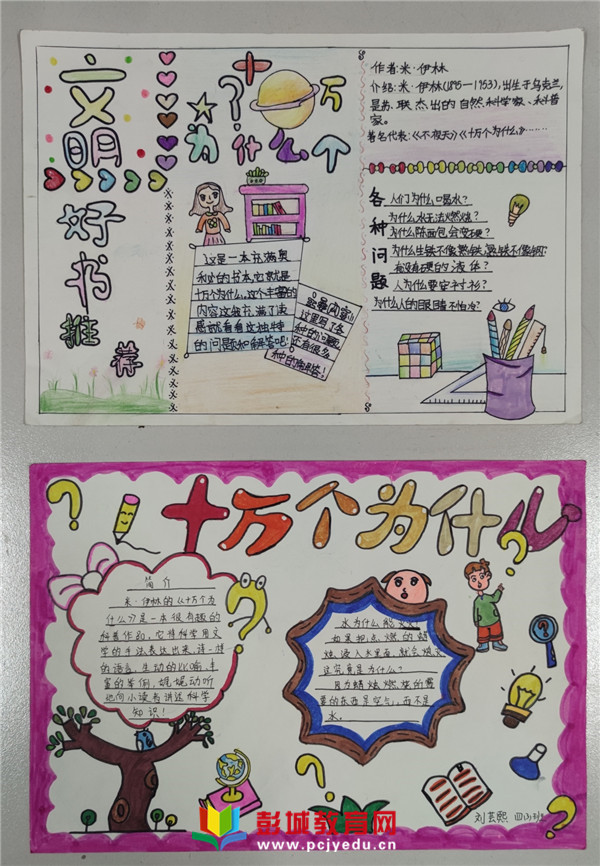 文明
好书
推荐
十万
个
为什么?
作者:米·伊林
介绍:米·伊林(1895-1953),出生于乌克兰,
是苏联杰出的自然科学家、科普
家。
著名代表:《不夜天》《十万个为什么》……
各种问题
人们为什么喝水?
为什么水无法燃烧?
为什么陈面包会变硬?
为什么生铁不像熟铁,熟铁不像钢?
有没有硬的液体?
人为什么要穿衬衫?
为什么人的眼睛不怕冷?
这是一本充满奥
秘的书本,它就是
十万个为什么,这个丰富的
内容
的问题和解答吧!
这里面了各
种的问题,
还有很多
种的解答!
十万个为什么
简介
米·伊林的《十万个为
什么》是一本很有趣的
科普作品,它将科学用文
学的手法表达出来,诗一样
的语言,生动的比喻,丰
富的举例,娓娓动听
地向小读者讲述科学
知识!
水为什么能灭火?
如果把点燃的蜡
烛浸入水里面,就会熄灭
这究竟是为什么?
因为蜡烛燃烧的需
要的东西是空气,而不是
水。
刘芸熙
彭城教育网
www.pcjyedu.cn